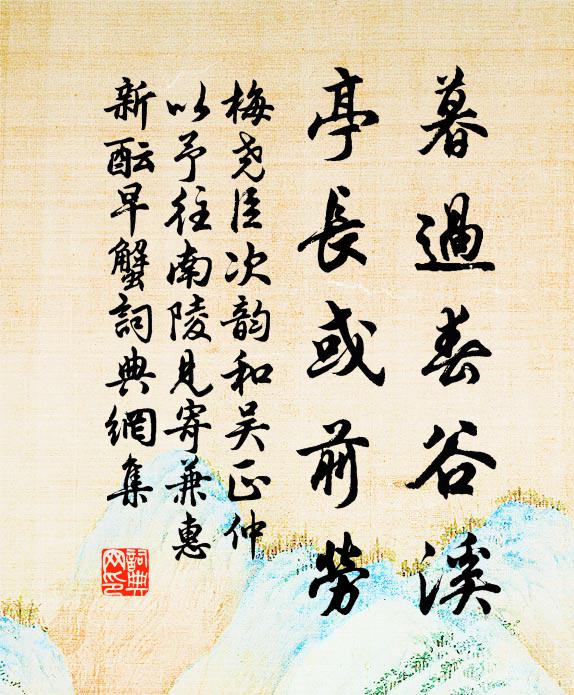 暮過春谷溪
亭長或前勞
梅尧臣次韵和吴正仲
以予往南陵見寄兼惠
新醖早蟹詞典網集
詞典